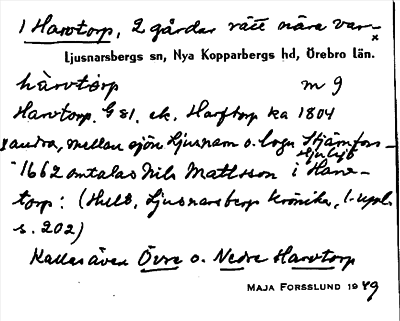 1 Harvtorp, 2 gårdar rätt nära var-
Ljusnarsbergs sn, Nya Kopparbergs hd, Örebro län.
hàrvtórp m 9
Harvtorp. GEl. ek. Harftorp ka 1804
xandra, mellan sjön Ljusnarn o. byn Stjärnfors-
Hyttejö
"1662 omtalas Nils Mattsson i Harv-
torp: (Hult, Ljusnarsbergs krönika, 1. uppl.
s. 202)
Kallas även Övre o. Nedre Harvtorp
MAJA FORSSLUND 1949